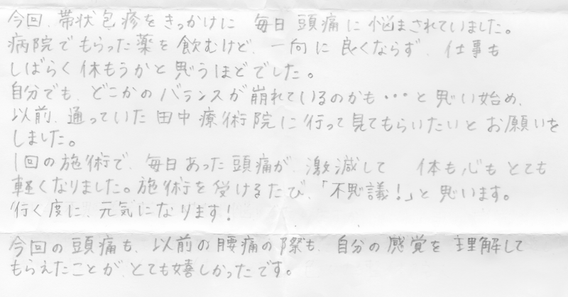 今回、帯状包疹をきっかけに 毎日頭痛に悩まされていました。
病院でもらった薬を飲むけど、一向に良くならず、仕事も
しばらく休もうかと思うほどでした。
自分でも、どこかのバランスが崩れているのかも・・・と思い始め、
以前、通っていた田中療術院に行って見てもらいたいとお願いを
しました。
1回の施術で、毎日あった頭痛が、激減して 体も心もとても
軽くなりました。施術を受けるたび、「不思議!」と思います。
行く度に、元気になります!
今回の頭痛も、以前の腰痛の際も、自分の感覚を理解して
もらえたことが、とても嬉しかったです。